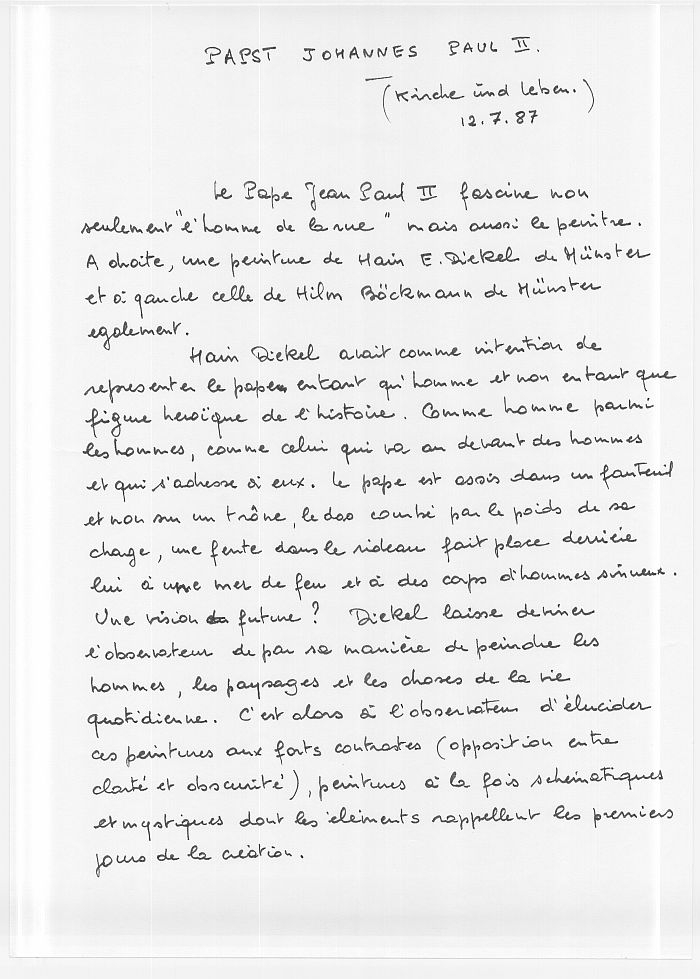 PAPST JOHANNES PAUL II.
(Kirche und Leben.)
12.7.87
Le Pape Jean Paul II fascine non
seulement "l'homme de la rue" mais aussi le peintre.
A droite, une peinture de Hain E. Diekel de Münster
et à gauche celle de Hilm Böckmann de Münster
egalement.
Hain Diekel avait comme intention de
representer le pape en tant qu'homme et non en tant que
figure heroïque de l'histoire. Comme homme parmi
les hommes, comme celui qui va au devant des hommes
et qui s'adresse à eux. Le pape est assis dans un fauteuil
et non sur un trône, le dos courbé par le poids de sa
charge, une fente dans le rideau fait place derrière
lui à une mer de feu et à des corps d'hommes sinueux.
Une vision future ? Diekel laisse deviner
l'observateur de par sa manière de peindre les
hommes, les paysages et les choses de la vie
quotidienne. C'est alors à l'observateur d'élucider
ces peintures aux forts contrastes (opposition entre
clarté et obscurité), peintures à la fois schématiques
et mystiques dont les éléments rappellent les premiers
jours de la création.